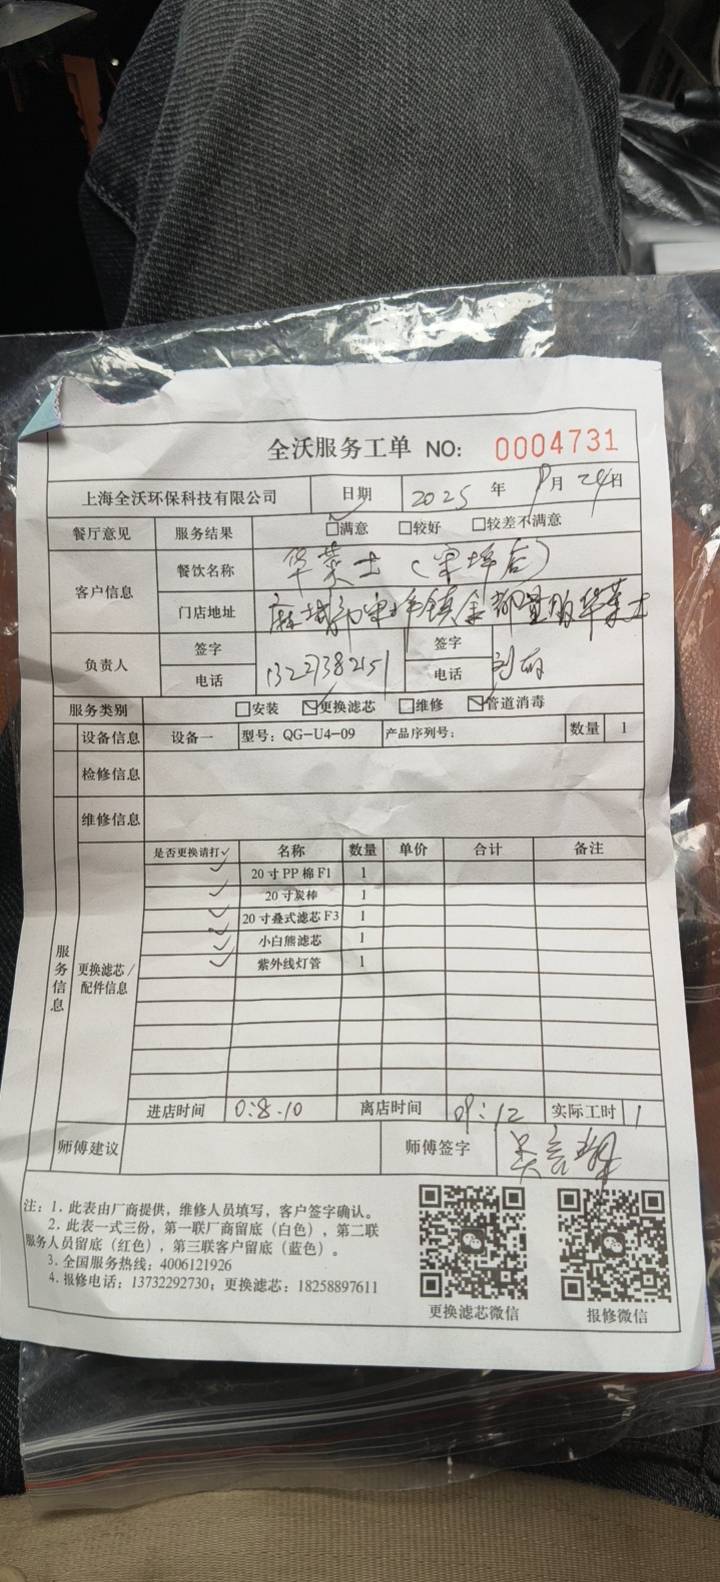 全沃服务工单 NO: 0004731
上海全沃环保科技有限公司 日期 2025 年 月 24日
餐厅意见 服务结果 ☑满意 □较好 □较差不满意
客户信息 餐饮名称 华莱士(宋埠店)
门店地址 麻城市宋埠镇金都量贩华莱士
负责人 签字 签字
电话 13227382151 电话
服务类别 □安装 ☑更换滤芯 □维修 ☑管道消毒
设备信息 设备一 型号:QG-U4-09 产品序列号: 数量 1
检修信息
维修信息
服务信息
更换滤芯/配件信息
是否更换请打✓ 名称 数量 单价 合计 备注
✓ 20寸PP棉F1 1
✓ 20寸炭棒 1
✓ 20寸叠式滤芯F3 1
✓ 小白熊滤芯 1
✓ 紫外线灯管 1
进店时间 0:8.10 离店时间 09:12 实际工时 1
师傅建议 师傅签字
注:1.此表由厂商提供,维修人员填写,客户签字确认。
2.此表一式三份,第一联厂商留底(白色),第二联
服务人员留底(红色),第三联客户留底(蓝色)。
3.全国服务热线:4006121926
4.报修电话:13732292730;更换滤芯:18258897611
更换滤芯微信 报修微信